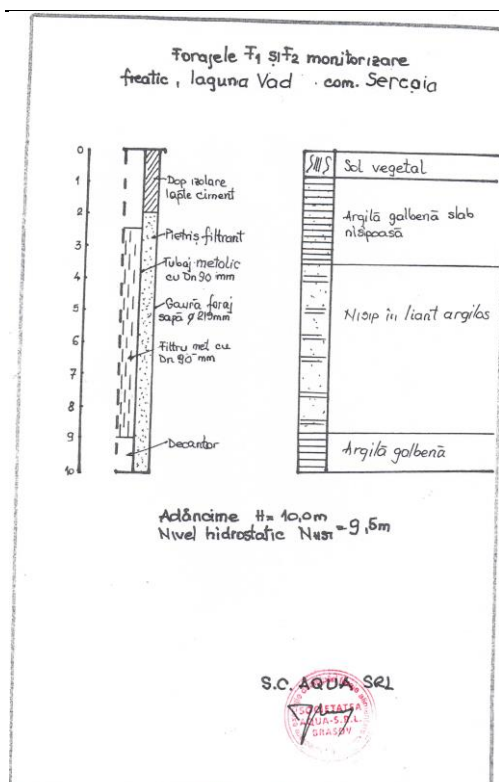 Forajele F1 și F2 monitorizare
freatic, laguna Vad com. Sercaia
0
1
2
3
4
5
6
7
8
9
10
Dop izolare
lapte ciment
Pietriș filtrant
Tubaj metalic
cu Dn 90 mm
Gaură foraj
sapă ø 219 mm
Filtru met cu
Dn 90 mm
Decantor
Sol vegetal
Argilă galbenă slab
nispoasă
Nisip in liant argilos
Argilă galbenă
Adâncime H= 10,0m
Nivel hidrostatic NHST = 9,5m
S.C. AQUA SRL
SOCIETATEA
AQUA-S.R.L.
BRASOV